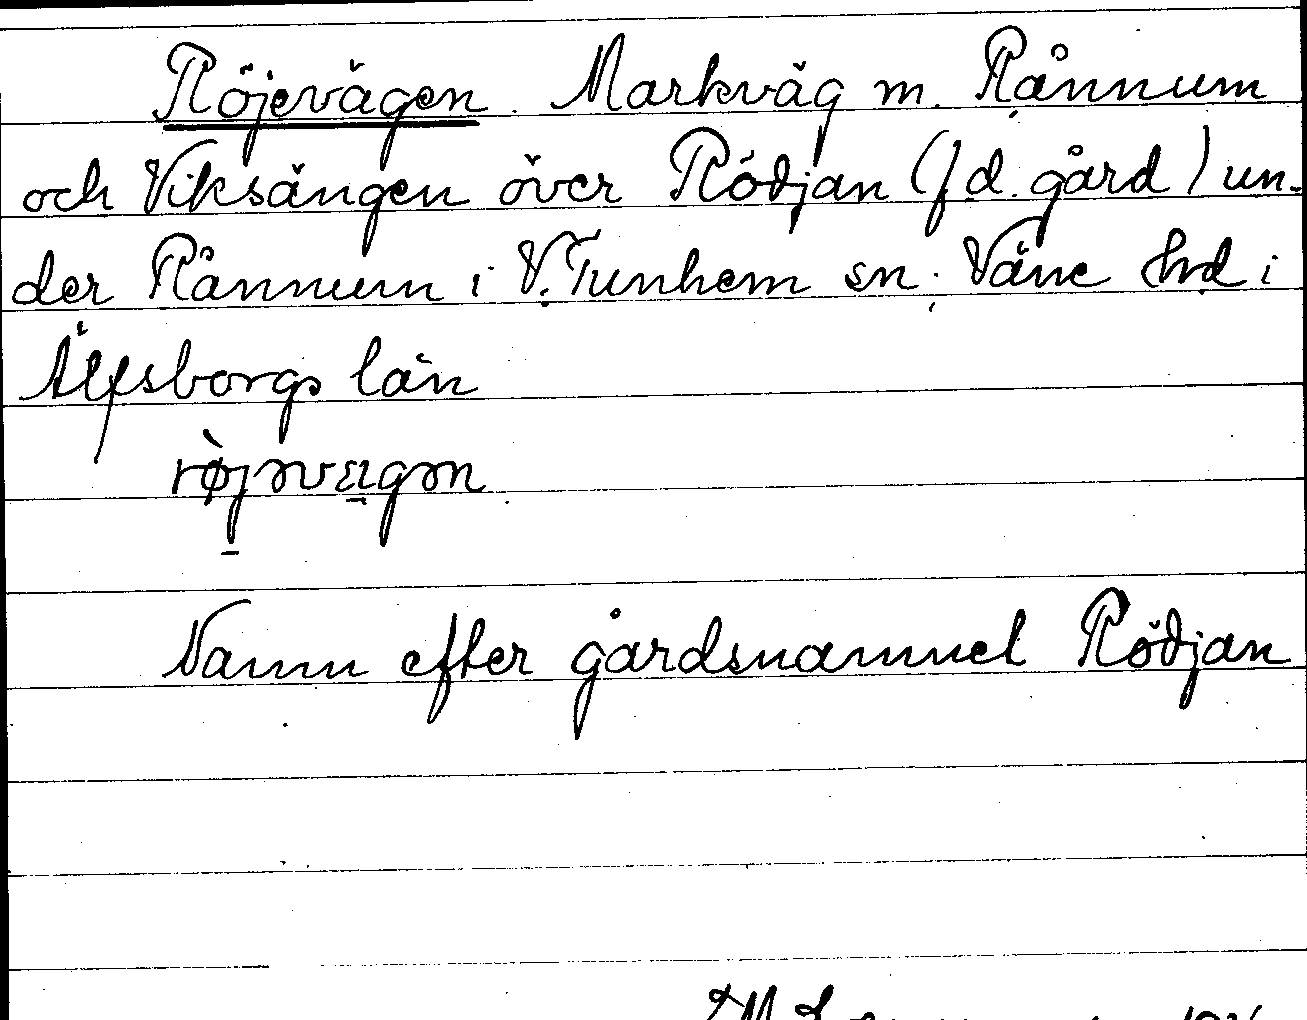 Röjevägen. Markväg m. Rånnum
och Viksängen över Rödjan (f d. gård) un-
der Rånnum i V. Tunhem sn. Väne hrd i
Älfsborgs län
Namn efter gårdsnamnet Rödjan